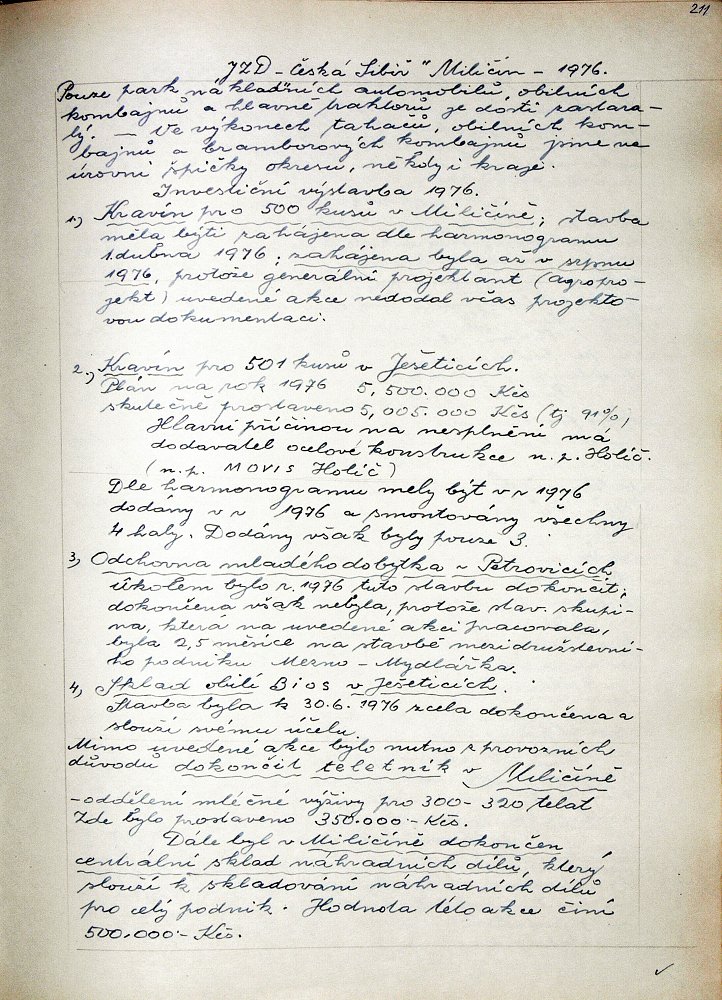 211
JZD - Česká Sibiř" Miličín - 1976.
Pouze park nákladních automobilů, obilních
kombajnů a hlavně traktorů je dosti zastara-
lý. - Ve výkonech tahačů, obilních kom-
bajnů a bramborových kombajnů jsme na
úrovni špičky okresu, někdy i kraje.
Investiční výstavba 1976.
1.) Kravín pro 500 kusů v Miličíně; stavba
měla býti zahájena dle harmonogramu
1. dubna 1976; zahájena byla až v srpnu
1976, protože generální projektant (agropro-
jekt) uvedené akce nedodal včas projekto-
vou dokumentaci.
2.) Kravín pro 501 kusů v Ješeticích.
Plán na rok 1976 5,500.000 Kčs
skutečně prostaveno 5,005.000 Kčs (tj 91%)
Hlavní příčinou na nesplnění má
dodavatel ocelové konstrukce n.p. Holíč.
(n.p. MOVIS Holíč)
Dle harmonogramu mely být v r 1976
dodány v r 1976 a smontovány všechny
4 haly. Dodány však byly pouze 3.
3, Odchovna mladého dobytka v Petrovicích
úkolem bylo r. 1976 tuto stavbu dokončit,
dokončena však nebyla, protože stav. skupi-
na, která na uvedené akci pracovala,
byla 2,5 měsíce na stavbě mezidružstevní-
ho podniku Mezno - Mydlářka.
4, Sklad obilí Bios v Ješeticích.
Stavba byla k 30.6. 1976 zcela dokončena a
slouží svému účelu.
Mimo uvedené akce bylo nutno z provozních
důvodů dokončit teletník v Miličíně
- oddělení mléčné výživy pro 300 - 320 telat
Zde bylo prostaveno 350.000.- Kčs.
Dále byl v Miličíně dokončen
centrální sklad náhradních dílů, který
slouží k skladování náhradních dílů
pro celý podnik. Hodnota této akce činí
500.000.- Kčs.